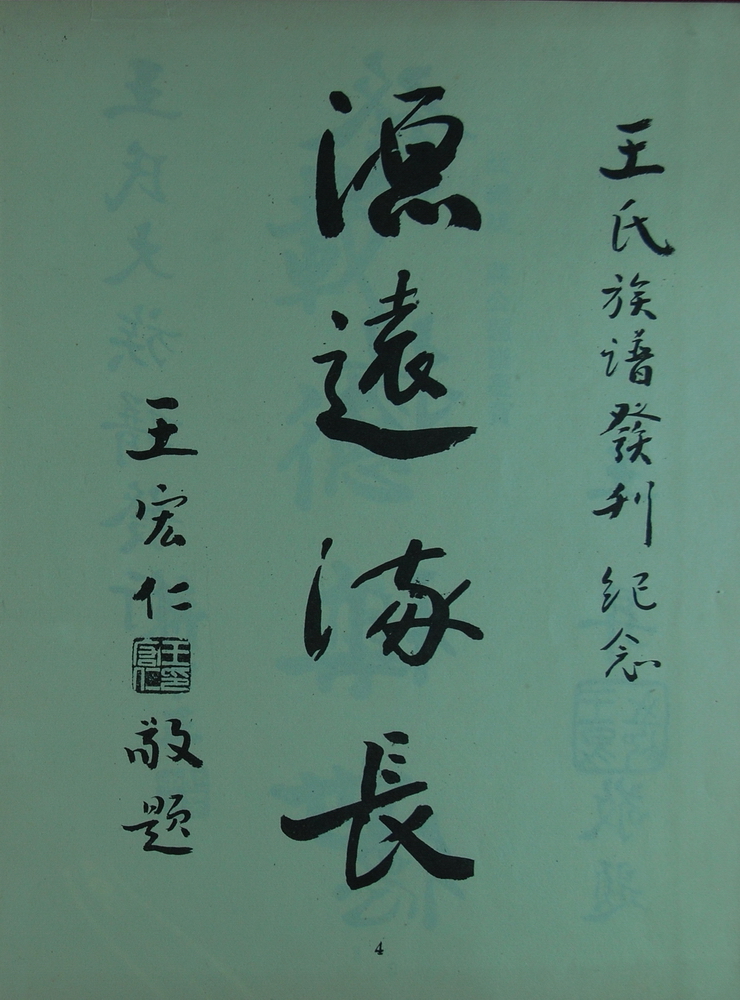 王氏族譜發刊紀念
源遠流長
王宏仁
敬題
4